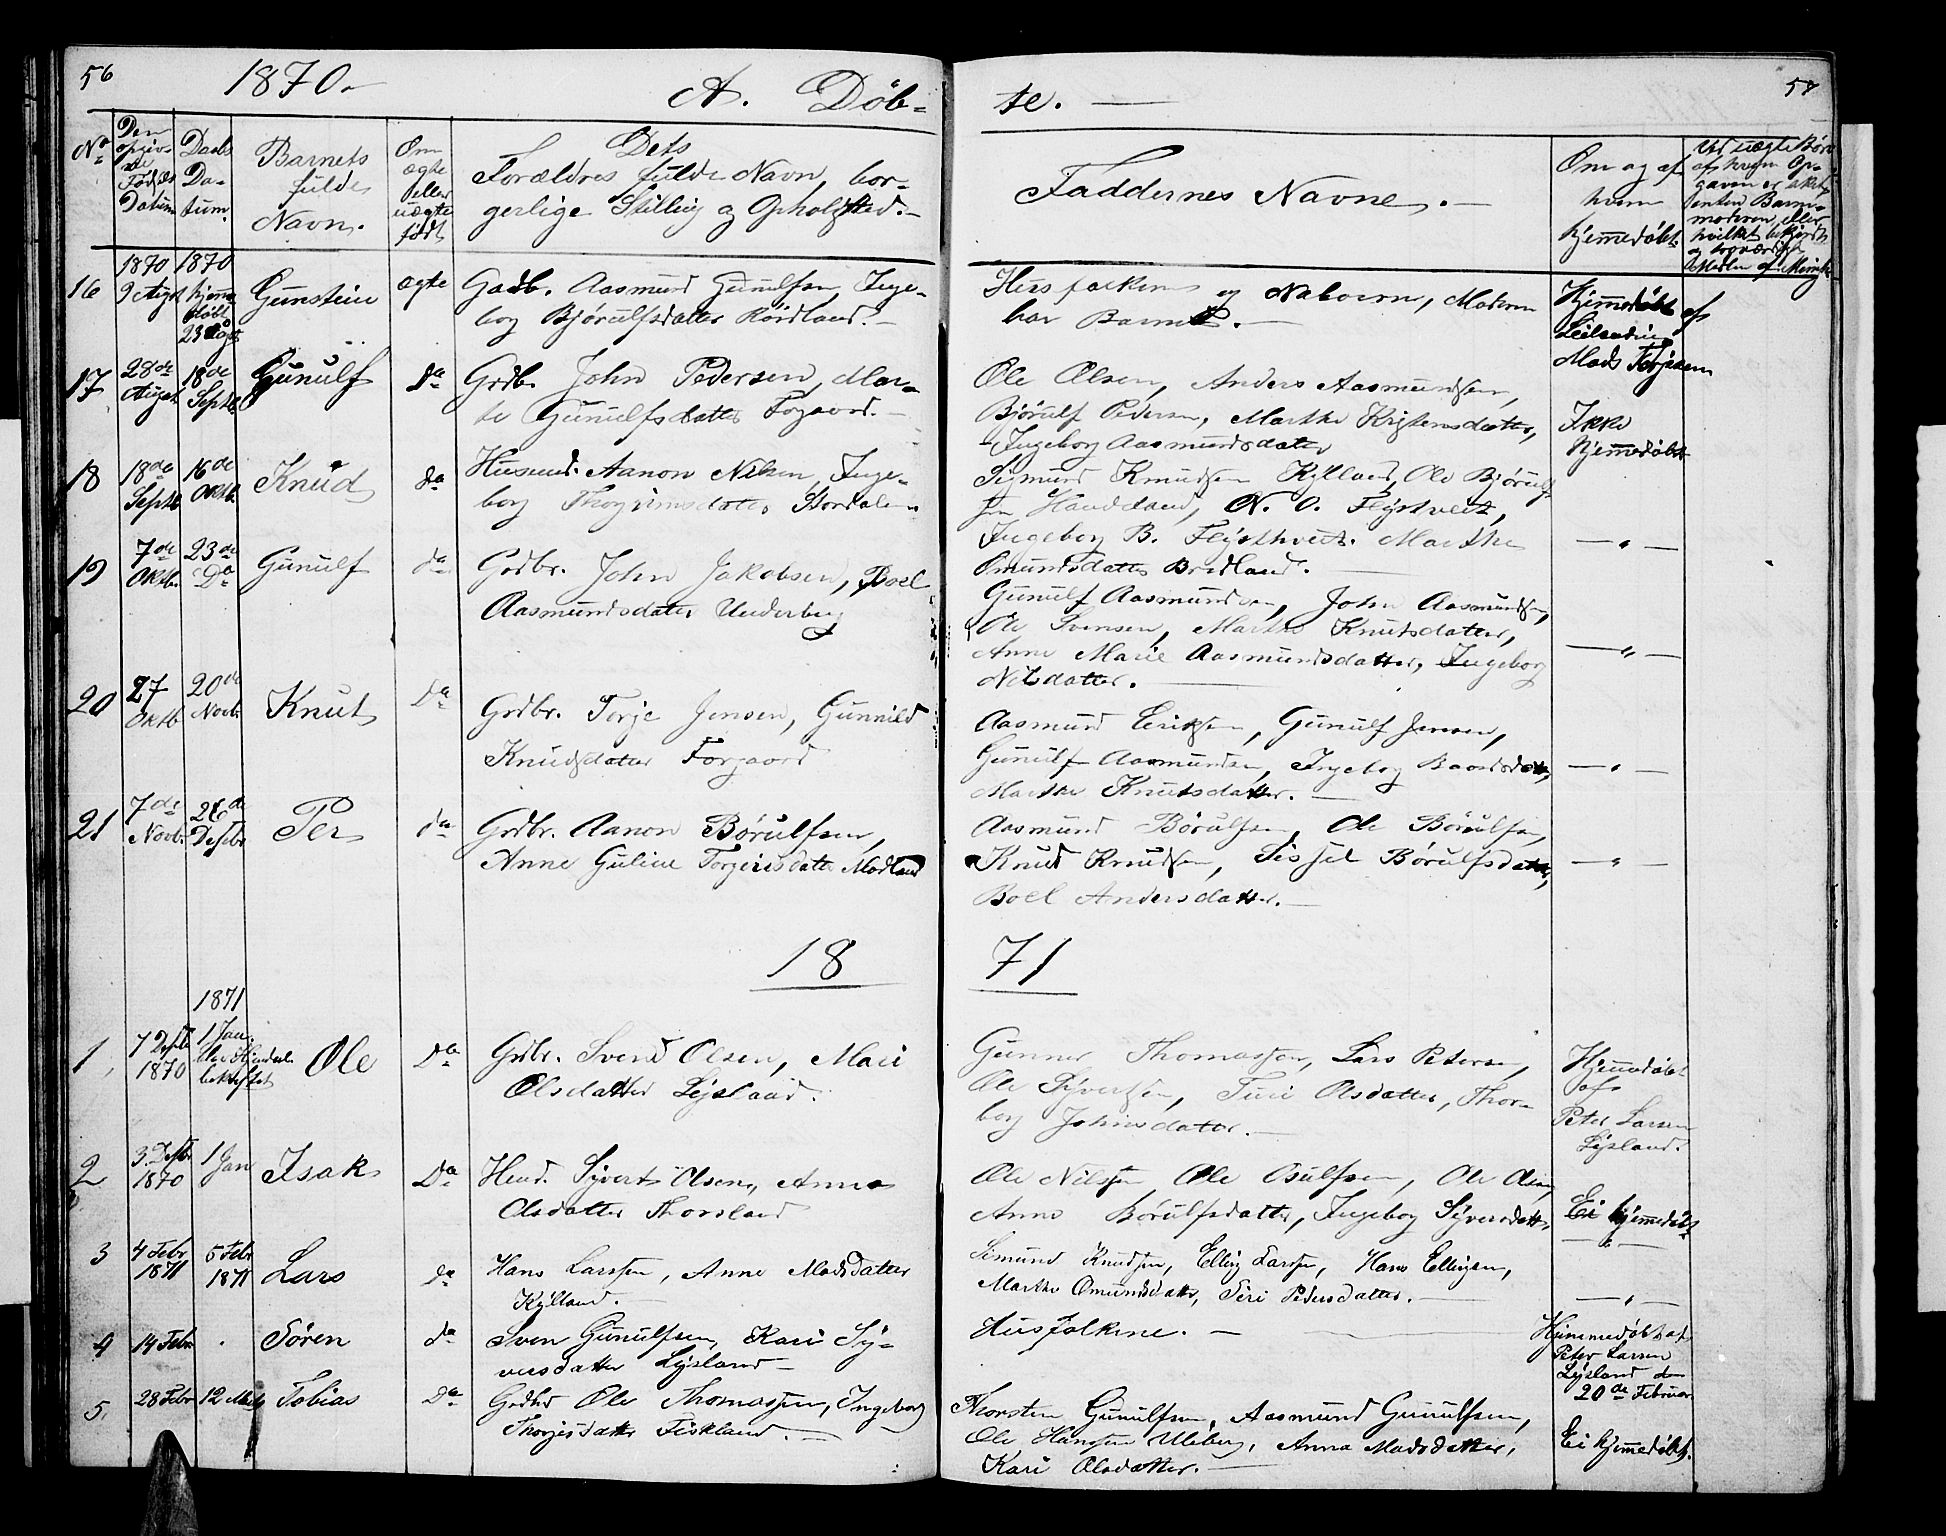 56
1870.
A. Døb-
te. —
57
No
Den opgivne Fødsels Datum
Daabs Datum.
Barnets fulde Navn.
Om ægte eller uægte født
Dets
Forældres fulde Navn, bor-
gerlige Stilling og Opholdsted.
Faddernes Navne.
Om og af hvem hjemmedøbt.
16
1870
9 August
1870
hjemmedøbt
23 Aug
Gunstein
ægte
Gadb. Aasmund Gunulfsen, Inge-
borg Bjørulfsdatter Røidland.
Husfolkene og Naboerne, Moderen
bar Barnet.
Hjemmedøbt af
Mads Terjesen
17
28de
August
18de
Septb
Gunulf
da
Grdb. John Pedersen, Mar-
te Gunulfsdatter Forgaard.
Ole Olsen, Anders Aasmundsen,
Bjørulf Pedersen, Marthe Kristensdatter,
Ingeborg Aasmundsdatter
Ikke
hjemmedøbt
18
18de
Septb
16de
Oktb.
Knud
da
Husmd. Aanon Nilsen, Inge-
borg Thorgrimsdatter Stordalen
Sigmund Knudsen Kylland, Ole Bjørulf-
sen Haudland, N. O. Fløistveit,
Ingeborg B. Fløisthveit. Marthe
Omundsdatter Bredland.
— " —
19
7de
Oktb.
23de
Da
Gunulf
da
Grdbr. John Jakobsen, Boel
Aasmundsdatter Underberg
Gunulf Aasmundsen, John Aasmundsen,
Ole Svensen, Marthe Knutsdatter,
Anne Marie Aasmundsdatter, Ingeborg
Nilsdatter.
— " —
20
27
Oktb
20de
Novb.
Knut
da
Grdbr. Torje Jensen, Gunnild
Knudsdatter Forgaard
Aasmund Eriksen, Gunulf Jensen,
Gunulf Aasmundsen, Ingeborg Baardsdatter,
Marthe Knutsdatter.
— " —
21
7de
Novb.
26de
Desbr
Per
da
Grdbr. Aanon Børulfsen,
Anne Guline Torgeirsdatter Modland
Aasmund Børulfsen, Ole Børulfsen,
Knud Knudsen, Sissel Børulfsdatter,
Boel Andersdatter.
— " —
18
71
1.
7 Desb
1870
1871
1 Jan
bekræftet
Ole
Da
Grdbr. Svend Olsen, Mari
Olsdatter Lysland.
Gunner Thomassen, Lars Petersen,
Ole Syvertsen, Turi Olsdatter, Thor-
borg Johnsdatter.
Hjemmedøbt
af
Peter Larsen
Lysland.
2
3 Desb.
1870
1 Jan
Isak
Da
Hmd. Syvert Olsen, Anne
Olsdatter Thorsland
Ole Nilsen, Ole Osulfsen, Ole Olsen,
Anne Børulfsdatter, Ingeborg Syversdatter
Ei hjemmedøbt
— " —
3
4 Febr
1871
5 Febr
1871
Lars
da
Hans Larssen, Anne Madsdatter
Kylland.
Simund Knudsen, Elling Larssen, Hans Ellingsen,
Marthe Omundsdatter, Siri Pedersdatter.
— " —
4
14 Febr
Søren
da
Sven Gunulfsen, Kari Sy-
versdatter Lysland
Husfolkene. —
Hjemmedøbt af
Peter Larsen
Lysland den
20de Februar
5.
28 Febr
12 Marts
Tobias
Da
Grdbr Ole Thomassen, Ingeborg
Thorjesdatter Fiskland.
Thorsten Gunulfsen, Aasmund Gunulfsen,
Ole Hansen Uleberg, Anna Madsdatter,
Kari Olsdatter.
Ei hjemmedøbt.